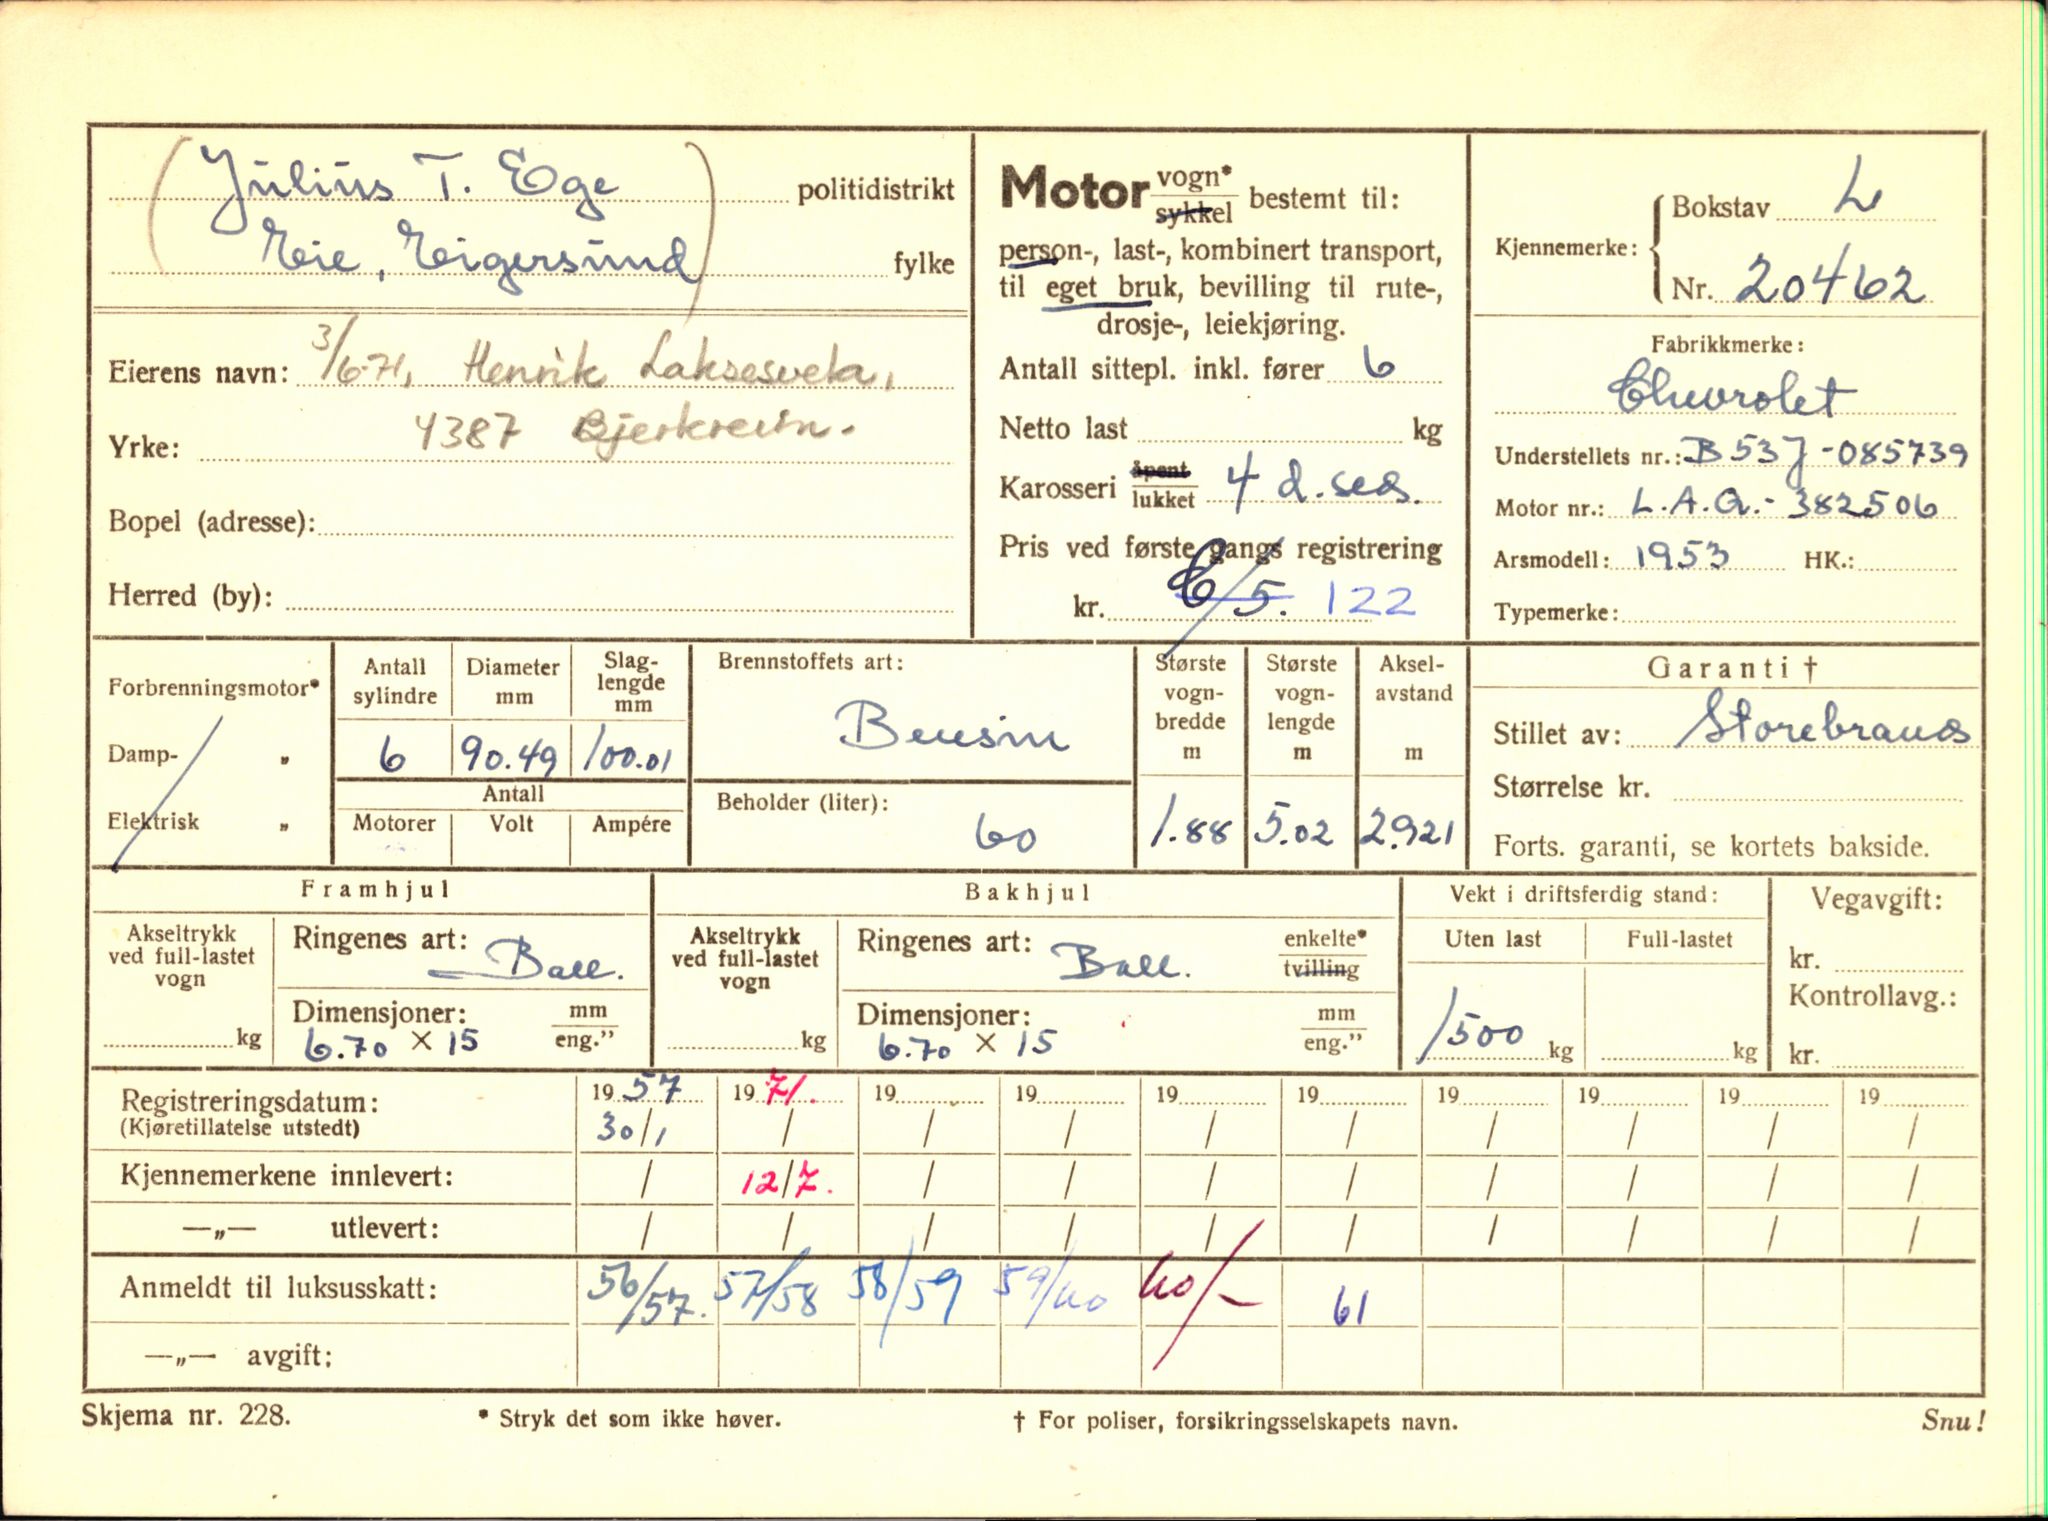 Julius T. Ege politidistrikt
Eie, Eigersund fylke
Eierens navn: 3/6-71, Henrik Laksesvela,
Yrke: 4387 Bjerkreim.
Bopel (adresse):
Herred (by):
Motor vogn* sykkel bestemt til:
person-, last-, kombinert transport,
til eget bruk, bevilling til rute-,
drosje-, leiekjøring.
Antall sittepl. inkl. fører 6
Netto last kg
Karosseri åpent lukket 4 d. sed.
Pris ved første gangs registrering
kr. C/5. 122
Kjennemerke: Bokstav L
Nr. 20462
Fabrikkmerke:
Chevrolet
Understellets nr.: B53J-085739
Motor nr.: L.A.Q.-382506
Arsmodell: 1953 HK.:
Typemerke:
Forbrenningsmotor*
Damp- „
Elektrisk „
Antall sylindre
Diameter mm
Slag-
lengde
mm
6 90.49 100.01
Antall
Motorer Volt Ampére
Brennstoffets art:
Bensin
Beholder (liter):
60
Største
vogn-
bredde
m
1.88
Største
vogn-
lengde
m
5.02
Aksel-
avstand
m
2.921
Garanti †
Stillet av: Storebrand
Størrelse kr.
Forts. garanti, se kortets bakside.
Framhjul
Akseltrykk
ved full-lastet
vogn
kg
Ringenes art: Ball.
Dimensjoner: mm
6.70 × 15 eng."
Bakhjul
Akseltrykk
ved full-lastet
vogn
kg
Ringenes art: Ball. enkelte*
tvilling
Dimensjoner: mm
6.70 × 15 eng."
Vekt i driftsferdig stand:
Uten last Full-lastet
1500 kg kg
Vegavgift:
kr.
Kontrollavg.:
kr.
Registreringsdatum: 19 57 19 71. 19 19 19 19 19 19 19 19
(Kjøretillatelse utstedt) 30/1 / / / / / / / / /
Kjennemerkene innlevert: / 12/7. / / / / / / / /
—„— utlevert: / / / / / / / / / /
Anmeldt til luksusskatt: 56/57. 57/58 58/59 59/60 60/- 61
—„— avgift:
Skjema nr. 228. * Stryk det som ikke høver. † For poliser, forsikringsselskapets navn. Snu!